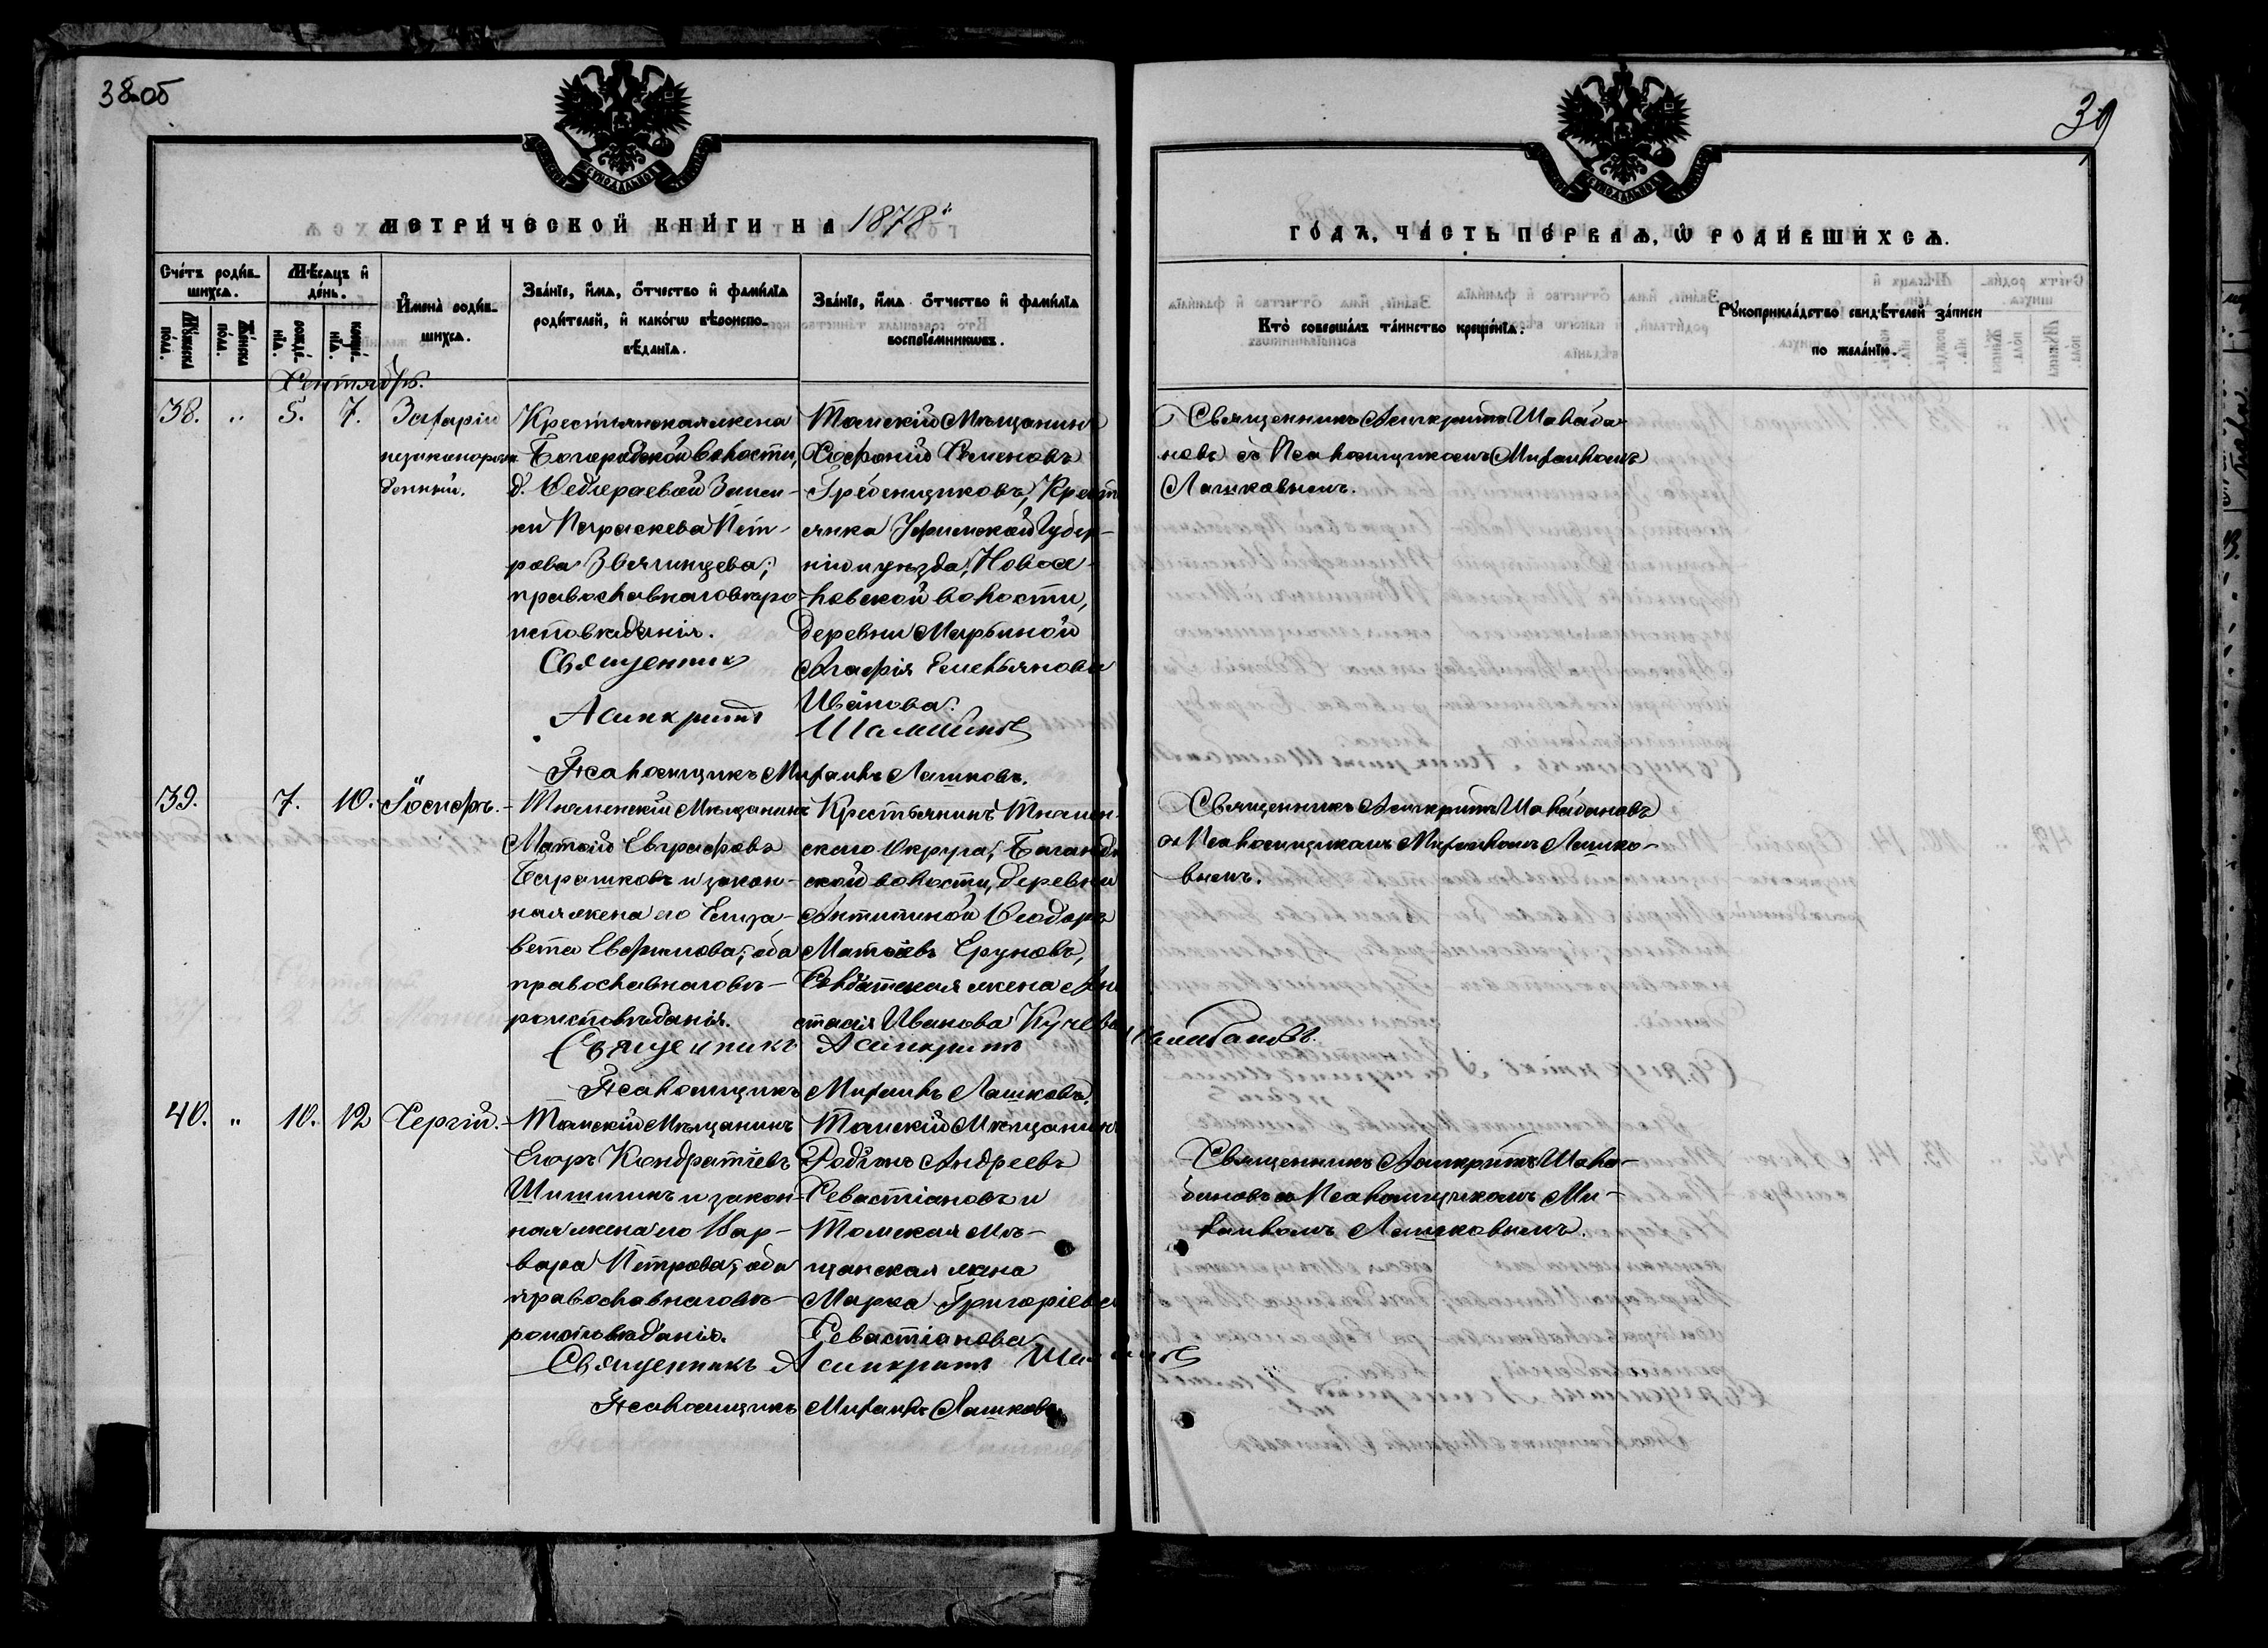 38 об
39
МЕТРИЧЕСКОЙ КНИГИ НА 1878й
ГОДЪ, ЧАСТЬ ПЕРВАЯ, Ѡ РОДИВШИХСЯ.
Счетъ родившихся.
Мужеска пола.
Женска пола.
Мѣсяцъ и день.
рожденія.
крещенія.
Имена родившихся.
Званіе, имя, отчество и фамилія
родителей, и какогѡ вѣроиспо-
вѣданія.
Званіе, имя отчество и фамилія
воспріемниковъ.
Кто совершалъ таинство крещенія.
Рукоприкладство свидѣтелей записи
по желанію.
Сентябрь.
38. „ 5. 7.
Захарій
незаконорож
денный.
Крестьянская жена
волости,
д.
Параскева Пет-
рова Звягинцева;
православнаго вѣро
исповѣданія.
Томскій Мѣщанинъ
Софоній Семеновъ
Гребенщиковъ, Крест
янка Уфимской Губер-
ніи и уѣзда, Новосе-
ловской волости,
деревни Марьиной
Агафія Емельянова
Иванова.
Священникъ Асинкритъ Шалаба-
новъ съ Псаломщикомъ Михаиломъ
Лашковымъ.
Священник
Асинкритъ
Псаломщикъ Михаилъ Лашковъ.
39. 7. 10. Іосифъ.
Тюменскій Мѣщанинъ
Матѳій Евграфовъ
Барашковъ и закон-
ная жена его Елиза-
вета Евфимова; оба
православнаго вѣ-
роисповѣданія.
Крестьянинъ Тюмен-
скаго Округа,
ской волости, деревни
Антипиной Ѳеодоръ
Матѳіевъ Ерѵновъ,
Солдатская жена Ана
стасія Иванова
Священникъ Асинкритъ Шалабановъ
съ Псаломщикомъ Михаиломъ Лашко-
вымъ.
Священникъ Асинкритъ Шалабановъ.
Псаломщикъ Михаилъ Лашковъ.
40. „ 10. 12 Сергій.
Томскій Мѣщанинъ
Егоръ Кондратіевъ
Шишинъ и закон-
ная жена его Вар-
вара Петрова; оба
православнаго вѣ-
роисповѣданія.
Томскій Мѣщанинъ
Родіонъ Андреевъ
Севастіановъ и
Томская Мѣ-
щанская жена
Марѳа Григоріева
Севастіанова
Священникъ Асинкритъ Шала-
бановъ съ Псаломщикомъ Ми-
хаиломъ Лашковымъ.
Священникъ Асинкритъ
Псаломщикъ Михаилъ Лашковъ.